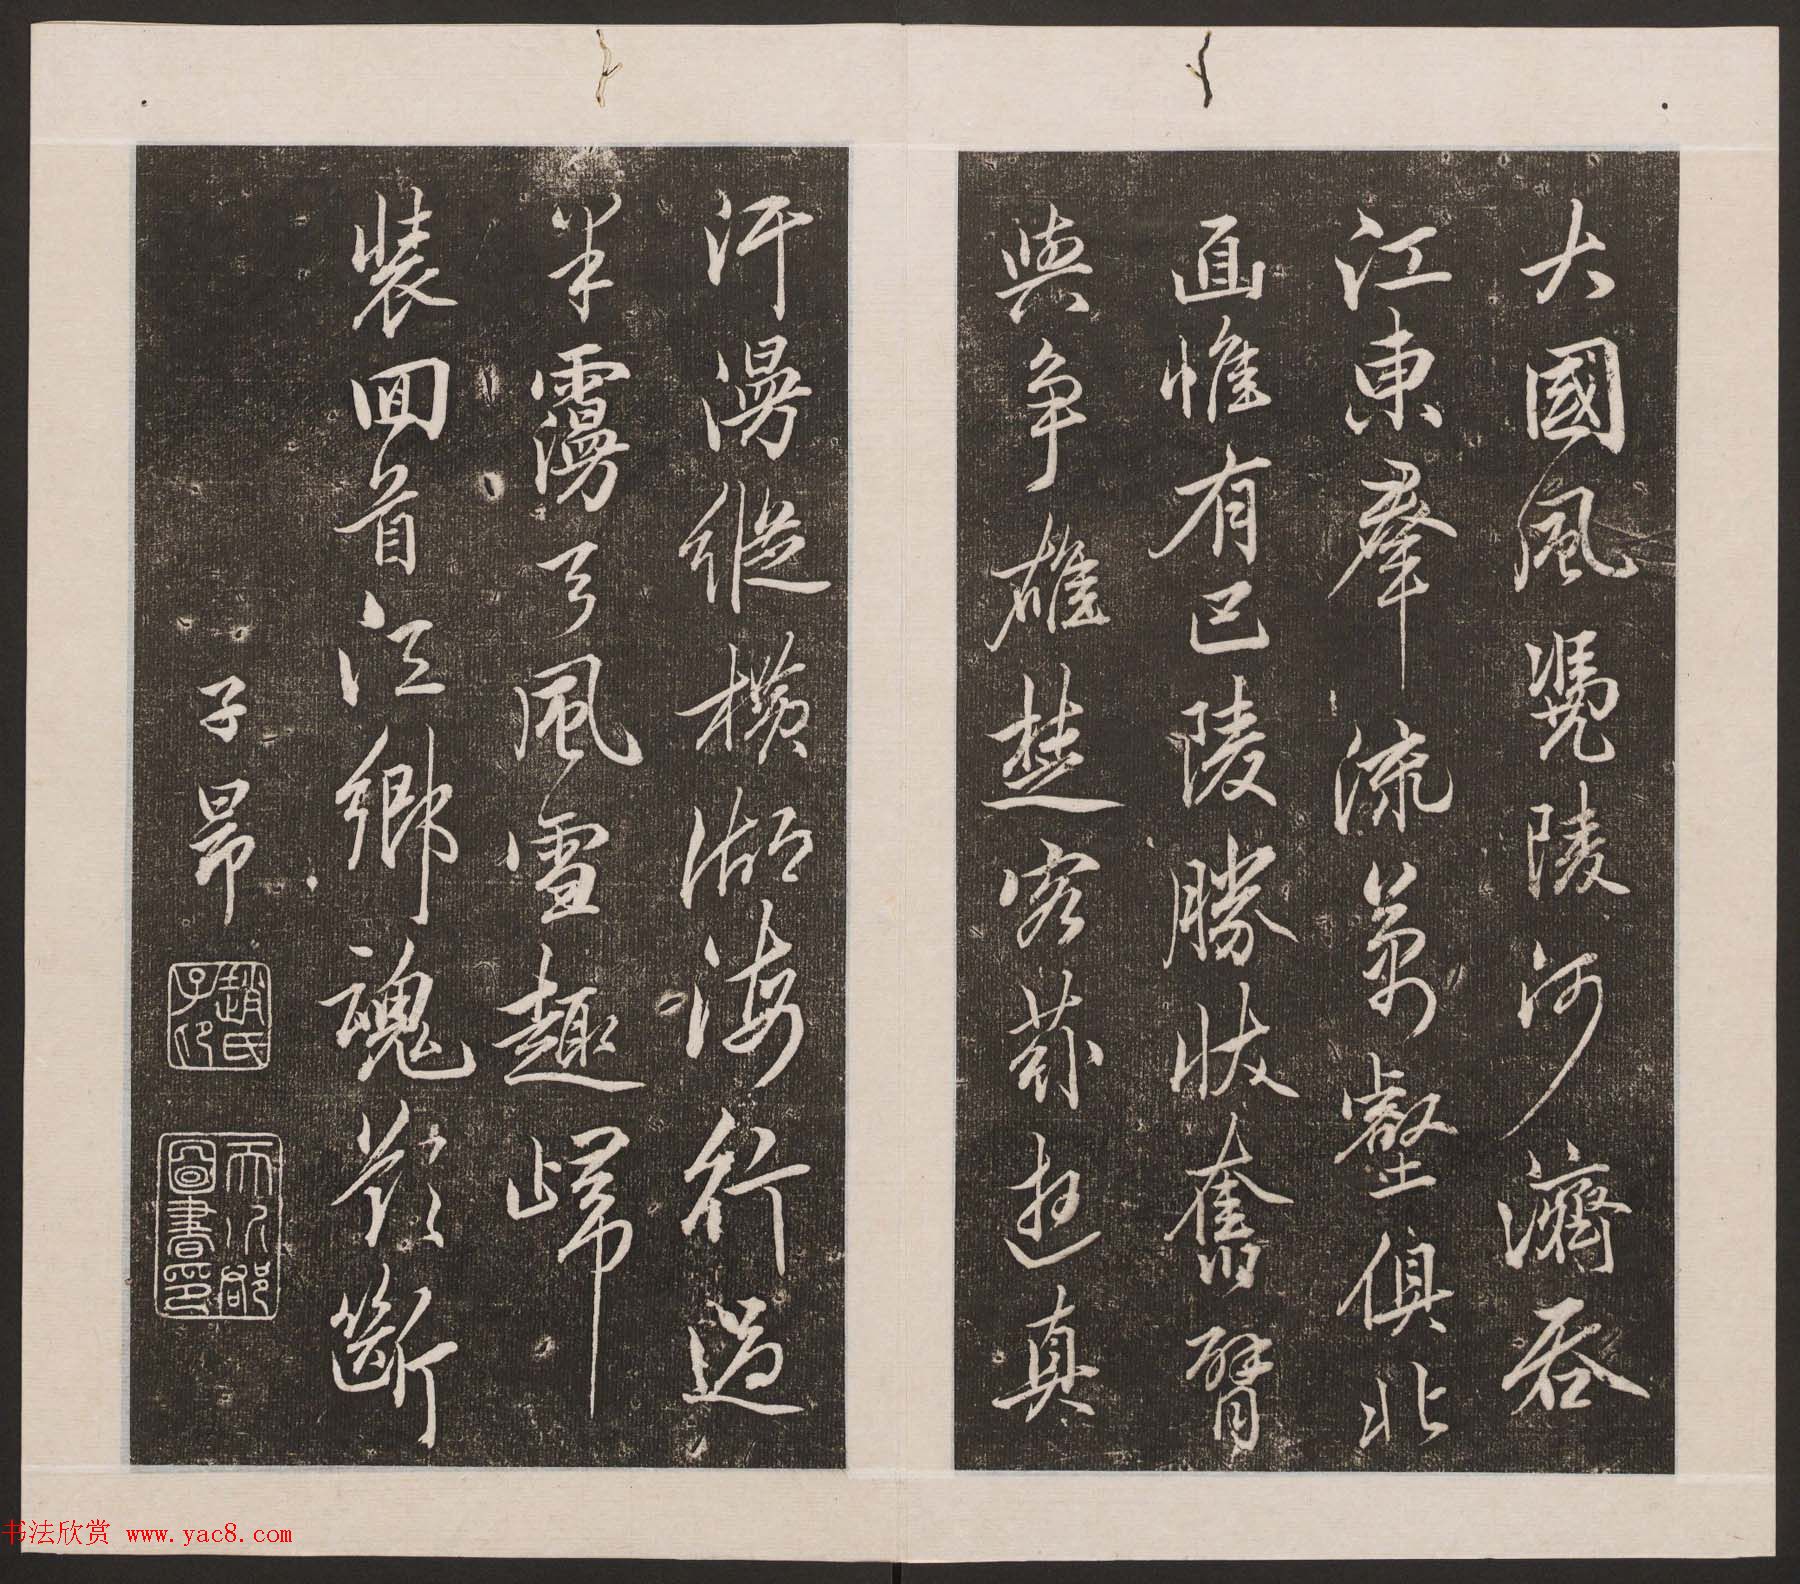 大國風憑陵河濟吞
江東羣流萬壑俱北
面惟有巴陵勝狀奮臂
與爭雄楚客遊真
汗漫縱橫湖海行過
半風雪趣歸
裝回首江鄉魂欲斷
子昂
趙氏子印
天水郡圖書印
书法欣赏 www.yac8.com